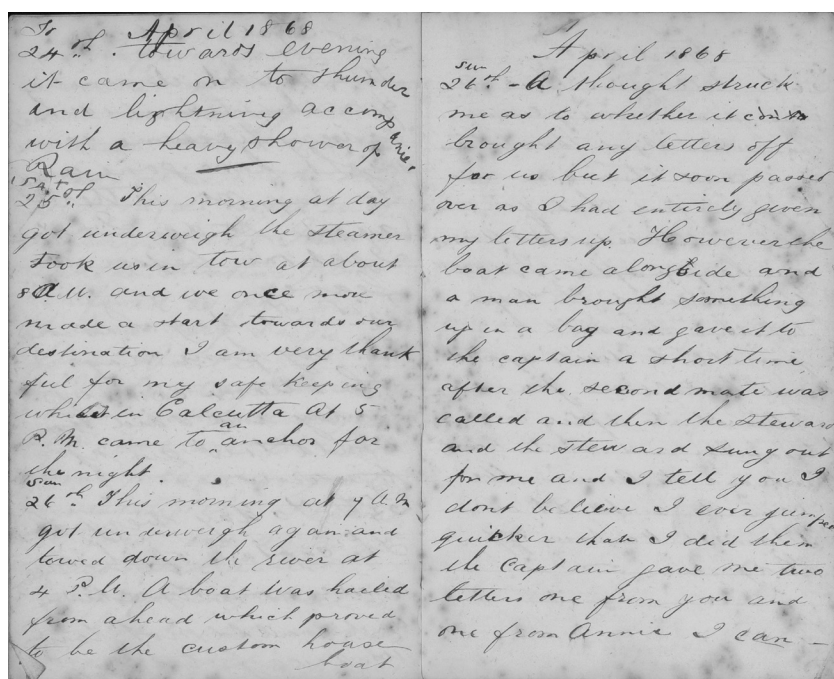 April 1868
Fr
24th. towards evening
it came on to thunder
and lightning accompanied
with a heavy shower of
Rain
Sat
25th. This morning at day
got underweigh the steamer
took us in tow at about
8 A.M. and we once more
made a start towards our
destination I am very thank
ful for my safe keeping
whilst in Calcutta At 5
P.M. came to an anchor for
the night.
Sun
26th This morning at 7 A.M
got underweigh again and
towed down the river at
4 P.M. A boat was hailed
from ahead which proved
to be the custom house
boat
April 1868
Sun
26th. - A thought struck
me as to whether it
brought any letters off
for us but it soon passed
over as I had entirely given
my letters up. However the
boat came alongside and
a man brought something
up in a bag and gave it to
the captain a short time
after the second mate was
called and then the steward
and the steward sung out
for me and I tell you I
dont believe I ever jumped
quicker than I did then
the Captain gave me two
letters one from you and
one from Annie I can -